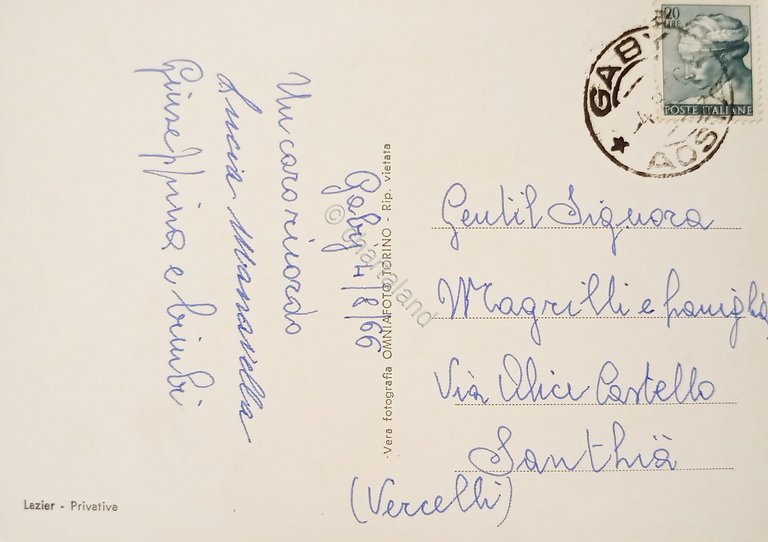 Gaby 4/8/66
Un caro ricordo
Lucia
Giuseppina e bimbi
Vera fotografia OMNIAFOTO TORINO - Rip. vietata
20
LIRE
POSTE ITALIANE
GABY
AOSTA
Gentil Signora
Magrilli e famiglia
Via Castello
Santhià
(Vercelli)
Lazier - Privativa
© Cartaland